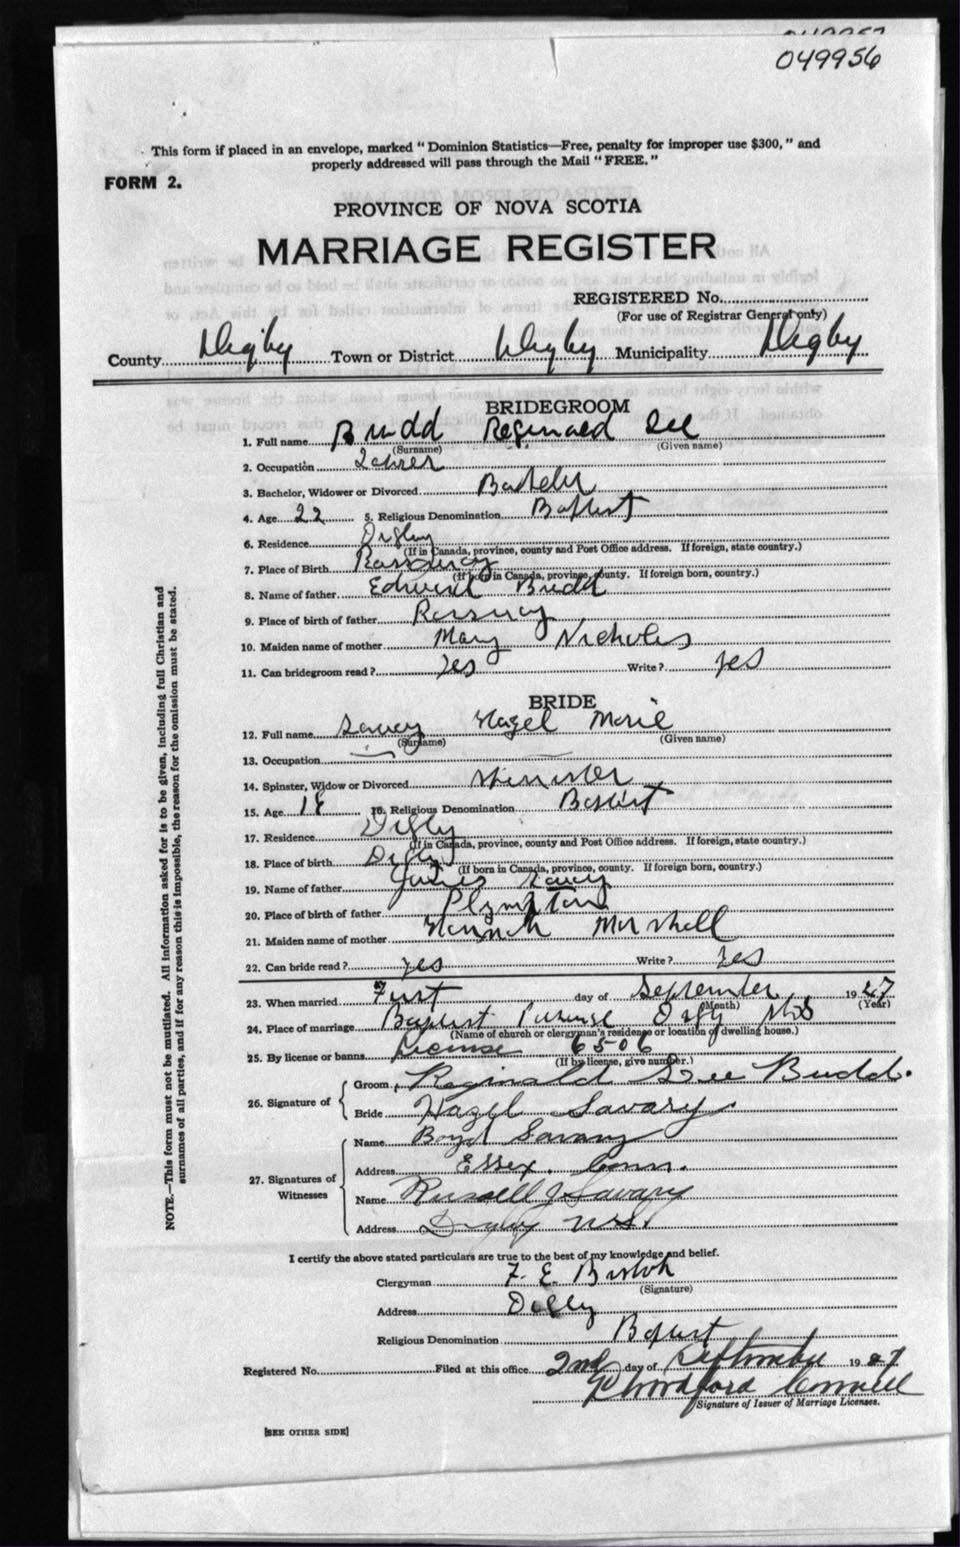 049956
This form if placed in an envelope, marked "Dominion Statistics—Free, penalty for improper use $300," and
properly addressed will pass through the Mail "FREE."
FORM 2.
PROVINCE OF NOVA SCOTIA
MARRIAGE REGISTER
REGISTERED No.
(For use of Registrar General only)
County Digby Town or District Digby Municipality Digby
BRIDEGROOM
1. Full name Budd Reginald Lee
(Surname) (Given name)
2. Occupation
3. Bachelor, Widower or Divorced Bachelor
4. Age 22 5. Religious Denomination Baptist
6. Residence Digby
(If in Canada, province, county and Post Office address. If foreign, state country.)
7. Place of Birth Rossway
(If born in Canada, province, county. If foreign born, country.)
8. Name of father Edward Budd
9. Place of birth of father Rossway
10. Maiden name of mother Mary Nicholes
11. Can bridegroom read? Yes Write? Yes
BRIDE
12. Full name Savary Hazel Marie
(Surname) (Given name)
13. Occupation
14. Spinster, Widow or Divorced Spinster
15. Age 18 16. Religious Denomination Baptist
17. Residence Digby
(If in Canada, province, county and Post Office address. If foreign, state country.)
18. Place of birth Digby
(If born in Canada, province, county. If foreign born, country.)
19. Name of father
20. Place of birth of father Plympton
21. Maiden name of mother Hannah Marshall
22. Can bride read? yes Write? Yes
23. When married First day of September 1927
(Month) (Year)
24. Place of marriage Baptist Parsonage Digby N S
(Name of church or clergyman's residence or location of dwelling house.)
25. By license or banns License 6506
(If by license, give number.)
26. Signature of
Groom Reginald Lee Budd.
Bride Hazel Savary.
27. Signatures of Witnesses
Name Boyd Savary
Address Essex. Conn.
Name Russell J Savary
Address Digby N.S.
I certify the above stated particulars are true to the best of my knowledge and belief.
Clergyman F. E.
(Signature)
Address Digby
Religious Denomination Baptist
Registered No. Filed at this office 2nd day of September 1927
Signature of Issuer of Marriage Licenses.
[SEE OTHER SIDE]
NOTE.—This form must not be mutilated. All information asked for is to be given, including full Christian and
surnames of all parties, and if for any reason this is impossible, the reason for the omission must be stated.